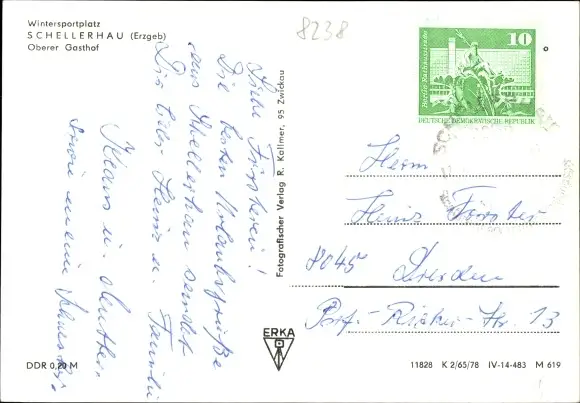 Wintersportplatz
SCHELLERHAU (Erzgeb)
Oberer Gasthof
8238
Liebe Försterei!
Die besten Urlaubsgrüße
aus Schellerhau sendet
Familie
Klaus u. Mutter
sowie meine
Fotografischer Verlag R. Kallmer, 95 Zwickau
10
Berlin Rathausstraße
DEUTSCHE DEMOKRATISCHE REPUBLIK
Herrn
Heinz Förster
8045 Dresden
Prof.-Ricker-Str. 13
ERKA
DDR 0,20 M
11828 K 2/65/78 IV-14-483 M 619